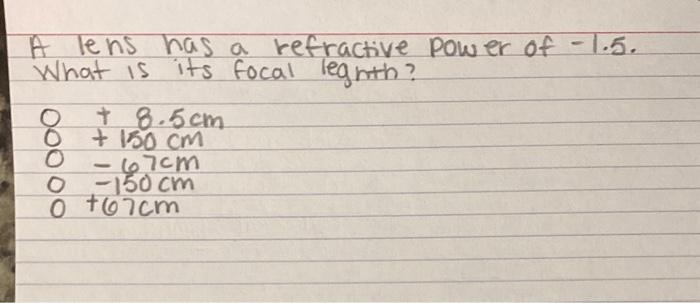 A lens has a refractive power of -1.5.
What is its focal legnth?
O + 8.5cm
O + 150 cm
O - 67cm
O -150 cm
O +67cm